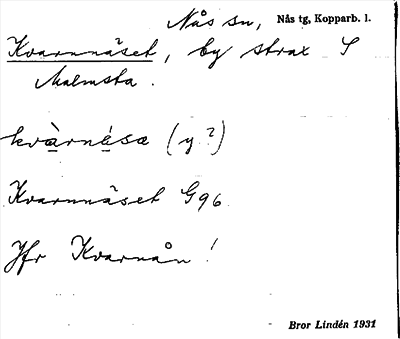 Nås sn, Nås tg, Kopparb. l.
Kvarnnäset, by strax S
Malmsta.
kvàrnésa (y?)
Kvarnnäset G96
Jfr Kvarnån!
Bror Lindén 1931